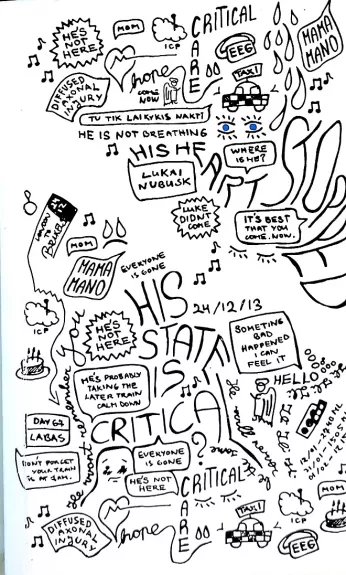 CRITICAL
CARE
HE'S
NOT
HERE
MOM
ICP
EEG
MAMA
MANO
DIFFUSED
AXONAL
INJURY
hope
COME
NOW
TAXI
TU TIK LAIKYKIS NAKTĮ
HE IS NOT BREATHING
HIS HEART STO
WHERE
IS HE?
LUKAI
NUBUSK
LUKE
DIDNT
COME
IT'S BEST
THAT YOU
COME. NOW.
LONDON
TO
24
12
MOM
MAMA
MANO
EVERYONE
IS GONE
ICP
HIS
STATE
IS
CRITICAL
24/12/13
HE'S
NOT
HERE
you
SOMETING
BAD
HAPPENED
I CAN
FEEL IT
HE'S PROBABLY
TAKING THE
LATER TRAIN
CALM DOWN
HELLO
DAY 64
LABAS
DON'T FORGET
YOUR TRAIN
IS AT 9AM.
remember
EVERYONE
IS GONE
HE'S NOT
HERE
?
CRITICAL
CARE
DIFFUSED
AXONAL
INJURY
hope
TAXI
ICP
MOM
EEG